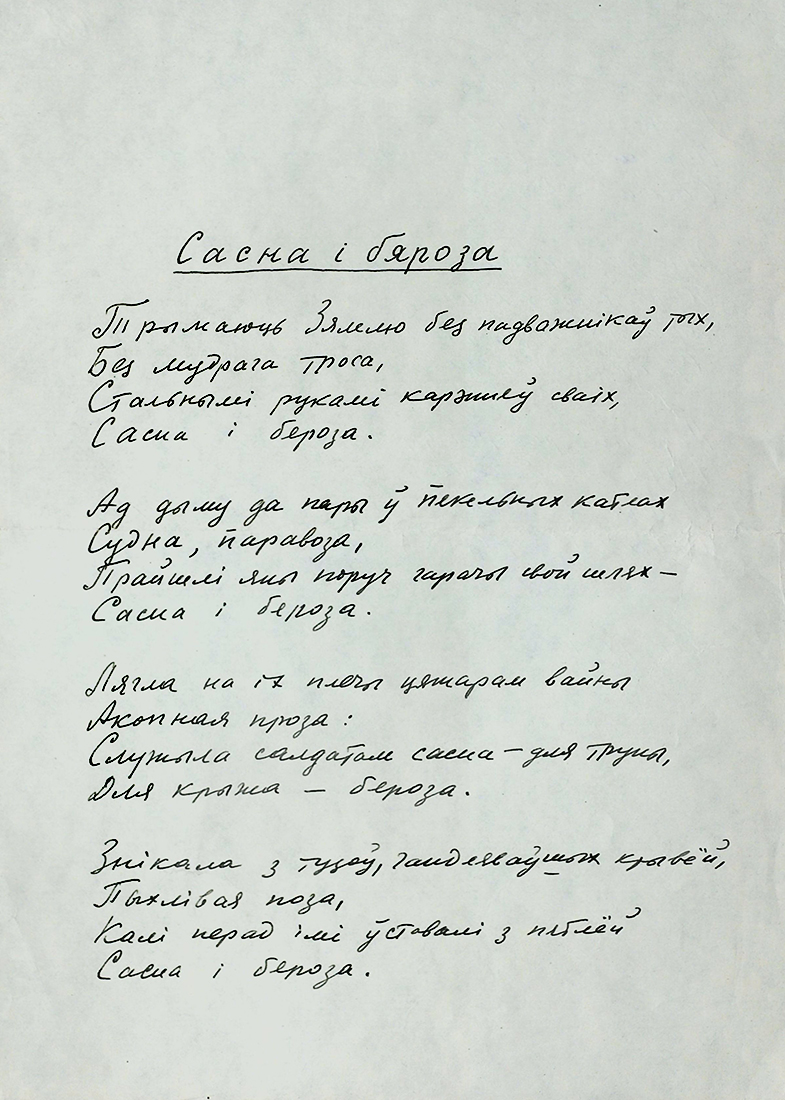 Сасна і бяроза
Трымаюць Зямлю без падважнікаў тых,
Без мудрага троса,
Стальнымі рукамі каржнёў сваіх,
Сасна і бероза.
Ад дыму да пары ў пекельных катлах
Судна, паравоза,
Прайшлі яны поруч гарачы свой шлях —
Сасна і бероза.
Лягла на іх плечы цяжарам вайны
Акопная проза:
Служыла салдатам сасна — для труны,
Для крыжа — бероза.
Знікала з тузоў, гандляваўшых крывёй,
Пыхлівая поза,
Калі перад імі ўставалі з пятлёй
Сасна і бероза.